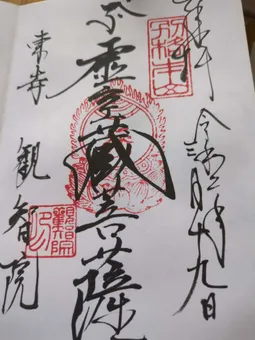 奉拝
別格本山
令和
月十九日
五大虚空蔵菩薩
東寺
観智院